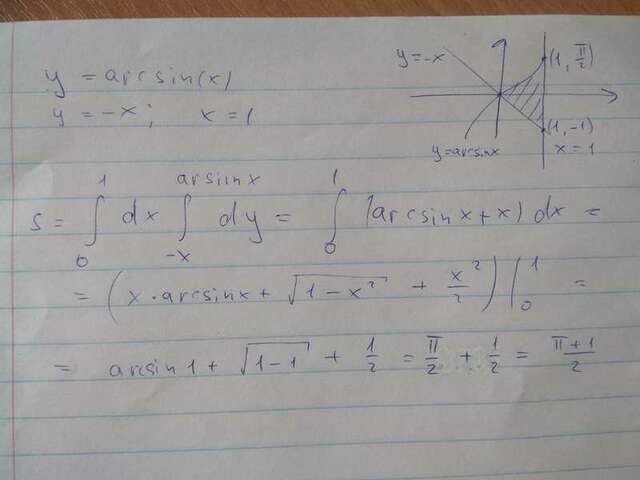 y = arcsin(x)
y = -x; x = 1
y = -x
(1, π/2)
(1, -1)
x = 1
y = arcsinx
S = ∫₀¹ dx ∫₋ₓ^(arsinx) dy = ∫₀¹ (arcsinx + x) dx =
= (x · arcsinx + √(1 - x²) + x²/2) |₀¹ =
= arcsin1 + √(1-1) + 1/2 = π/2 + 1/2 = (π+1)/2